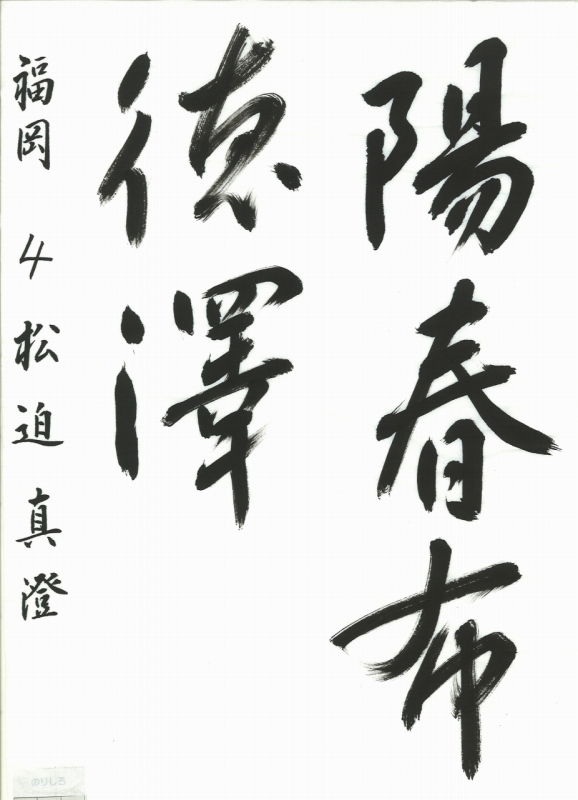 陽春布
徳澤
福岡 4 松迫真澄
のりしろ